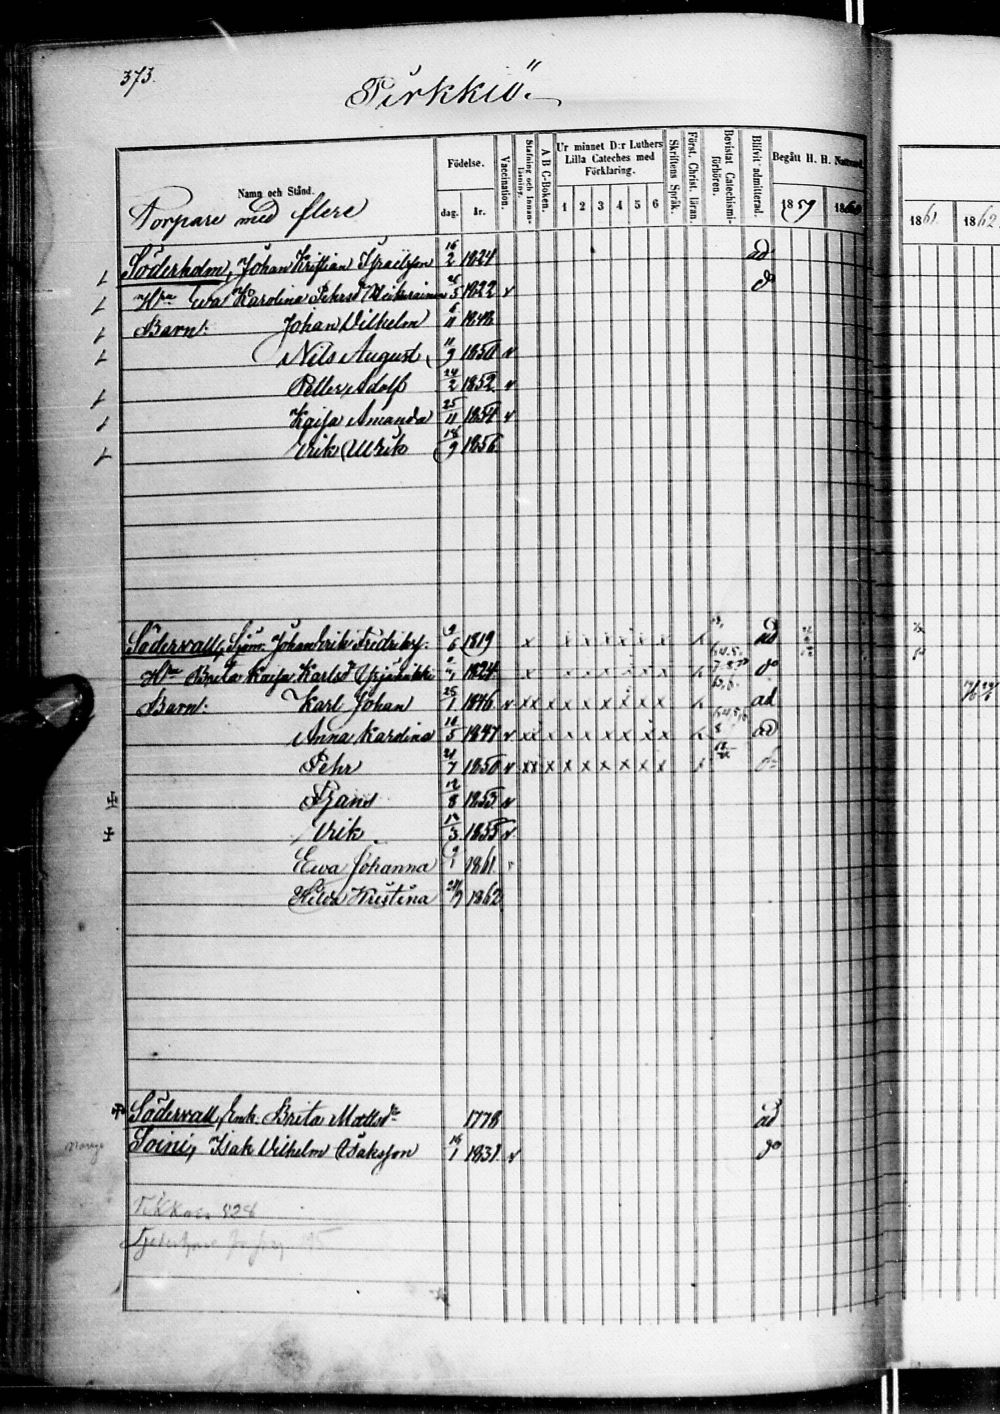 373.
Pirkkiö.
Namn och Stånd.
Torpare med flere
Födelse.
dag. år.
Vaccination.
Stafning och Innanläsning.
A B C-Boken.
Ur minnet D:r Luthers Lilla Cateches med Förklaring.
1 2 3 4 5 6
Skriftens Språk.
Först. Christ. läran.
Bevistat Catechismiförhören.
Blifvit admitterad.
Begått H. H. Nattvard
1859 1860 1861 1862
Söderholm, Johan Kristian Israelsson 16/2 1824 ad
Hru Eva Karolina Pehrsd 5 1822 v do
Barn: Johan Vilhelm 6/11 1848
Nils August 11/9 1850 v
Petter Adolf 24/2 1852 v
Kajsa Amanda 25/11 1854 v
Erik Ulrik 18/9 1856
Södervall, Sjöm. Johan Erik Fredriksf. 6 1819 x x x x x x x x ad
Hru Brita Kajsa Karlsd 1824 x x x x x x x x do
Barn: Karl Johan 25/1 1846 v xx x x x x x x x x ad
Anna Karolina 18/5 1847 v xx x x x x x x x x ad
Pehr 21/7 1850 v xx x x x x x x x x
Frans 12/8 1853 v
Erik 12/3 1855 v
Ewa Johanna 9/1 1861
Hilda Kristina 24/9 1862
Södervall, Enk. Brita Mattsdr 1778 ad
Soini, Isak Vilhelm Isaksson 16/1 1831 v do
Norrige
528